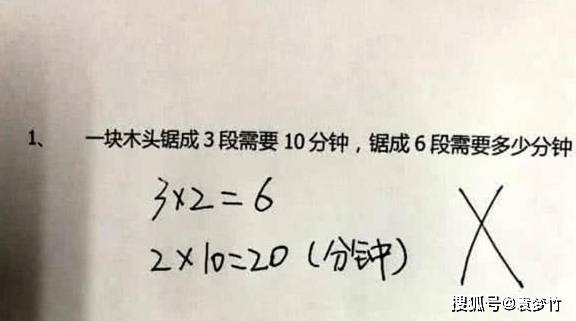 1、 一块木头锯成3段需要10分钟，锯成6段需要多少分钟
3×2=6
2×10=20（分钟）
搜狐号@袁梦竹